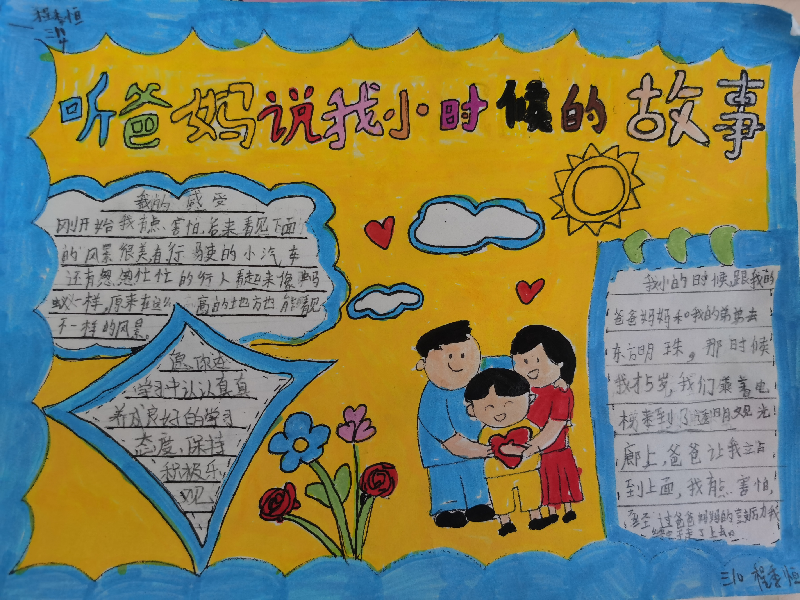 程 恒
三
听爸妈说我小时候的故事
我的感受
刚开始我有点害怕,后来看见下面
的风景很美有行驶的小汽车
还有匆匆忙忙的行人看起来像蚂
蚁一样,原来在这么高的地方也能看见
不一样的风景。
愿你在
学习中认认真真
养成良好的学习
态度,保持
积极乐
观
我小的时候,跟我的
爸爸妈妈和我的弟弟去
东方明珠,那时候
我才5岁,我们乘着电
梯来到了透明观光
廊上,爸爸让我站
到上面,我有点害怕,
经过爸爸妈妈的鼓励,我
走了上去。
三10 程 恒